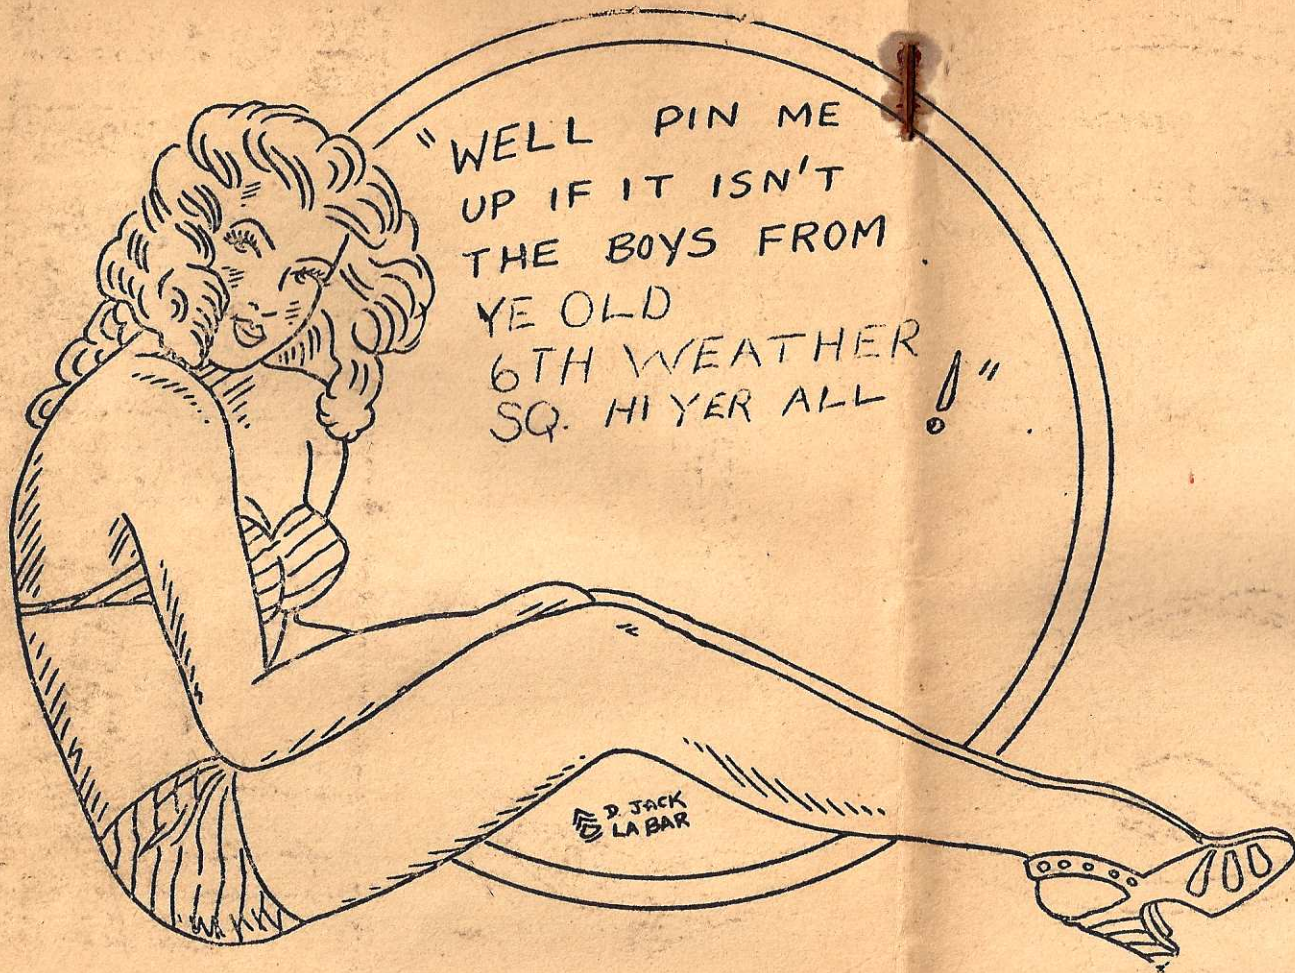 "WELL PIN ME
UP IF IT ISN'T
THE BOYS FROM
YE OLD
6TH WEATHER
SQ. HI YER ALL !"
D. JACK
LA BAR